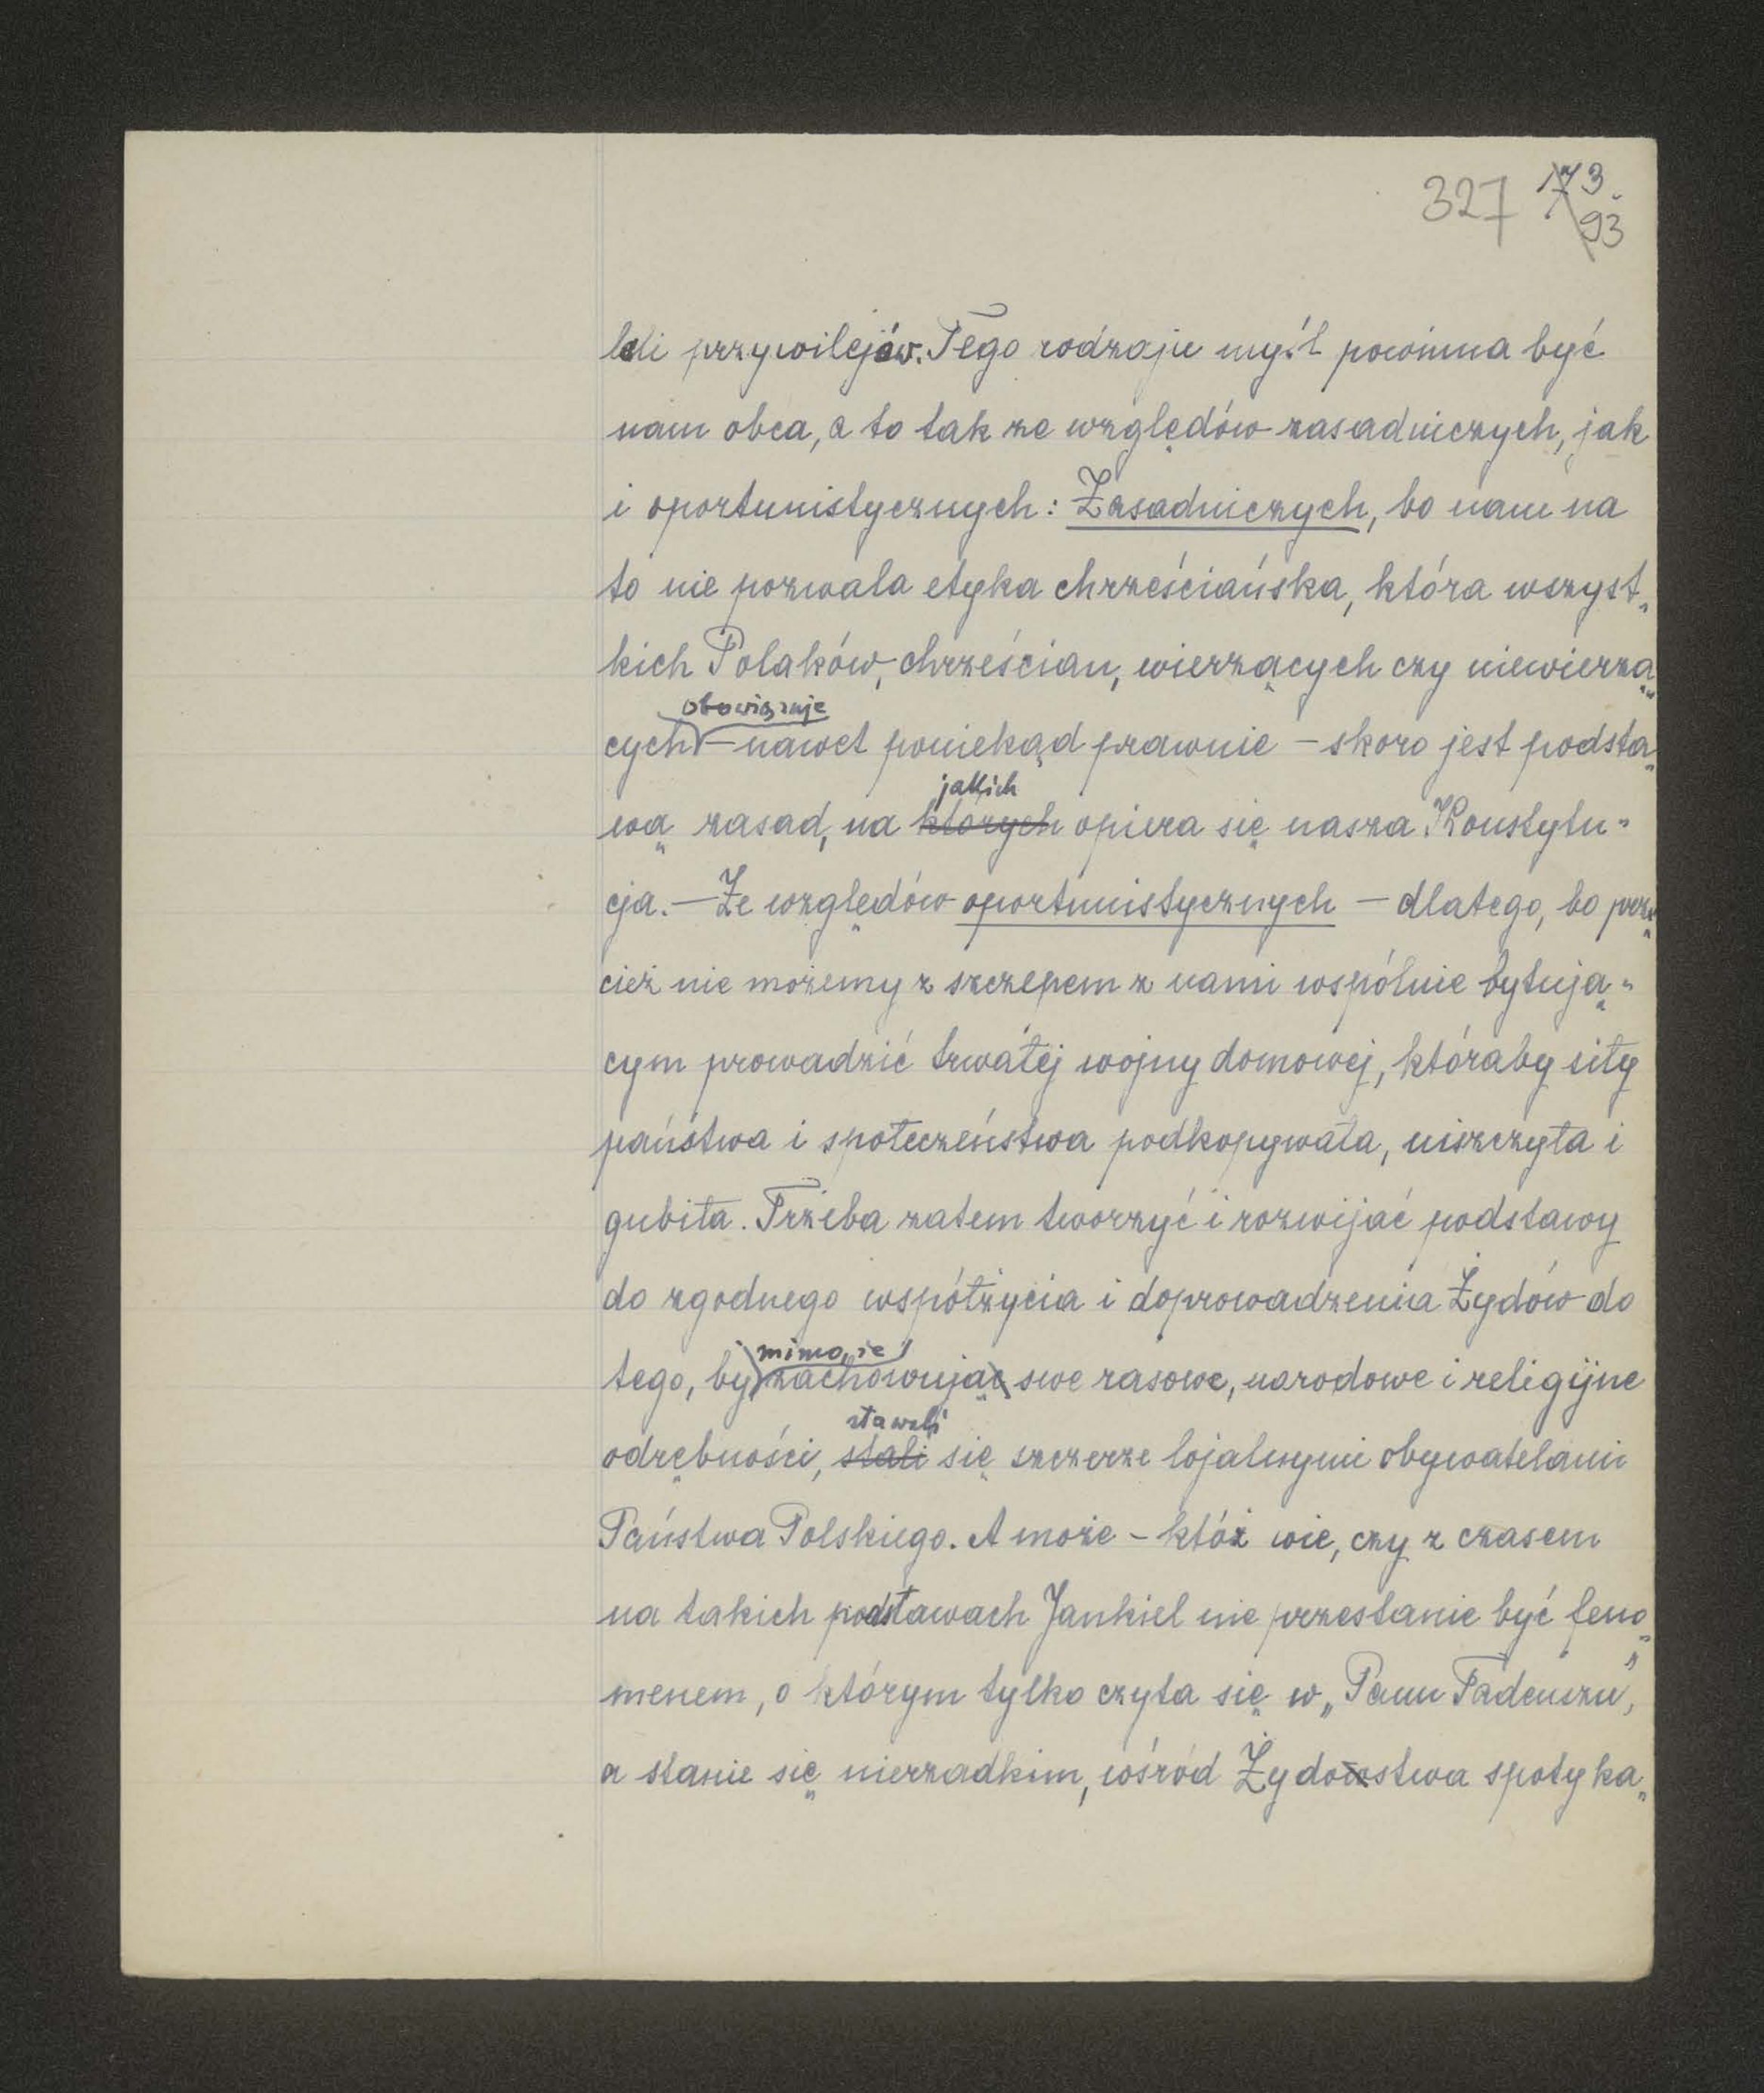 327 173.
93
leli przywilejów. Tego rodzaju myśl powinna być
nam obca, a to tak ze względów zasadniczych, jak
i oportunistycznych: Zasadniczych, bo nam na
to nie pozwala etyka chrześciańska, która wszyst„
kich Polaków, chrześcian, wierzących czy niewierzą„
obowiązuje
cych – nawet poniekąd prawnie – skoro jest podsta„
jakich
wą zasad, na których opiera się nasza Konstytu„
cja. – Ze względów oportunistycznych – dlatego, bo prze„
cież nie możemy z szczepem z nami wspólnie bytują„
cym prowadzić trwałej wojny domowej, któraby siły
państwa i społeczeństwa podkopywała, niszczyła i
gubiła. Trzeba zatem tworzyć i rozwijać podstawy
do zgodnego współżycia i doprowadzenia Żydów do
mimo, że
tego, by zachowując swe rasowe, narodowe i religijne
stawali
odrębności, stali się szczerze lojalnymi obywatelami
Państwa Polskiego. A może – któż wie, czy z czasem
na takich podstawach Jankiel nie przestanie być feno„
menem, o którym tylko czyta się w „Panu Tadeuszu”,
a stanie się nierzadkim, wśród Żydowstwa spotyka„